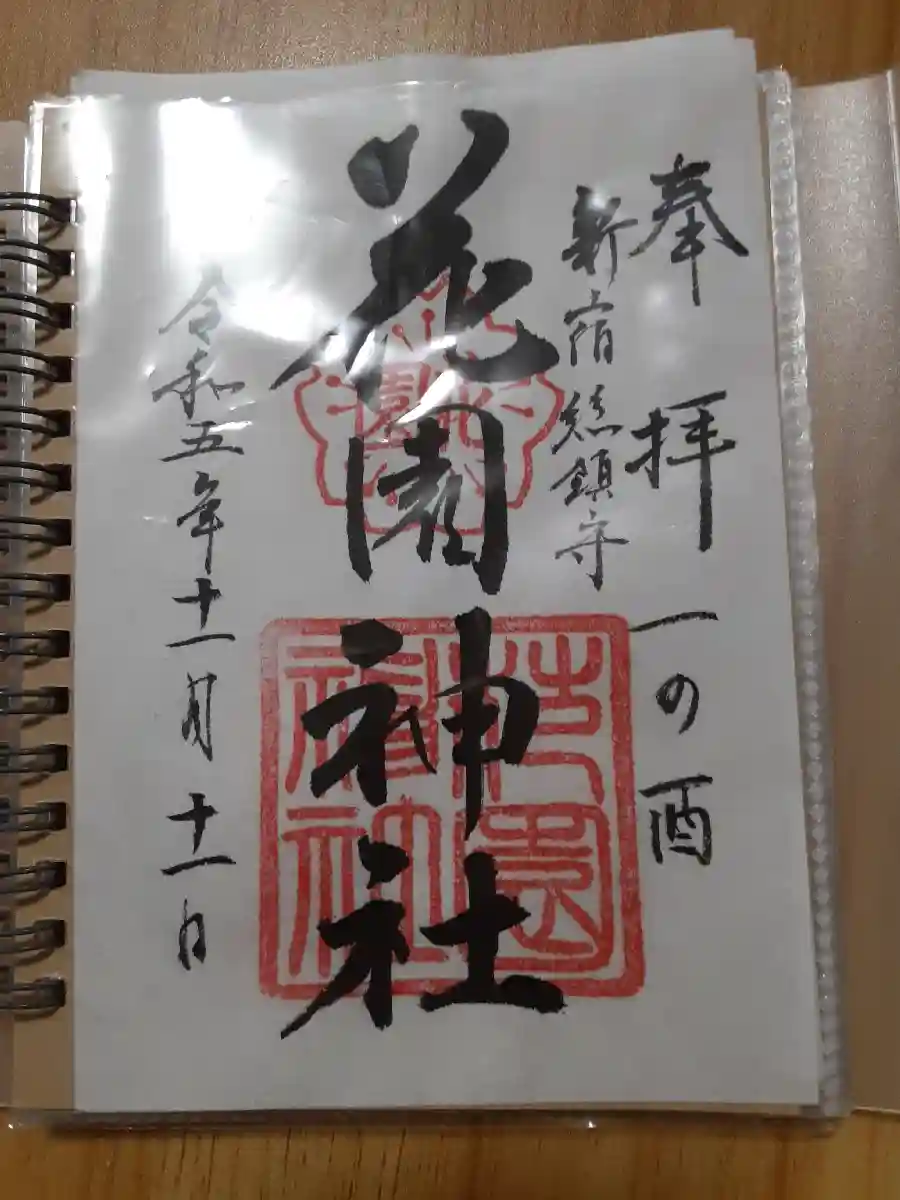 奉拝 一の酉
新宿總鎮守
花園神社
花園神社
令和五年十一月十一日